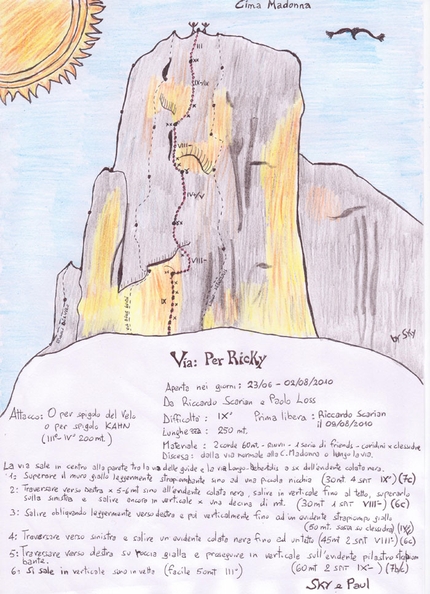 Cima Madonna
III
IX-/IX
VIII-
IV+/V
VIII-
IX
by Sky
Via: Per Ricky
Aperta nei giorni: 23/06 - 02/08/2010
Da Riccardo Scarian e Paolo Loss
Attacco: O per spigolo del Velo
o per spigolo KAHN
(III°- IV° 200mt.)
Difficoltà: IX° Prima libera: Riccardo Scarian
il 09/08/2010
Lunghezza: 250 mt.
Materiale: 2 corde 60mt - 1 serie di friends - cordini e clessidre
Discesa: dalla via normale alla C. Madonna o lungo la via.
La via sale in centro alla parete tra la via delle guide e la via Longo a sx dell'evidente colata nera.
1: Superare il muro giallo leggermente strapiombante sino ad una piccola nicchia (30mt 4 SNT IX°) (7c)
2: Traversare verso destra x 5-6mt sino all'evidente colata nera, salire in verticale fino al tetto, superarlo
sulla sinistra e salire ancora in verticale x una decina di mt. (30mt 1 SNT VIII-) (6c)
3: Salire obliquando leggermente verso destra e poi verticalmente fino ad un evidente strapiombo giallo
(50 mt. sosta su clessidra)
4: Traversare verso sinistra e salire un evidente colata nera fino ad un tetto (45mt 2 SNT VIII-) (6c)
5: Traversare verso destra su roccia gialla e proseguire in verticale sull'evidente pilastro strapiom
bante. (60mt 2 SNT IX-) (7b/c)
6: Si sale in verticale sino in vetta (facile 50mt III°)
Sky e Paul